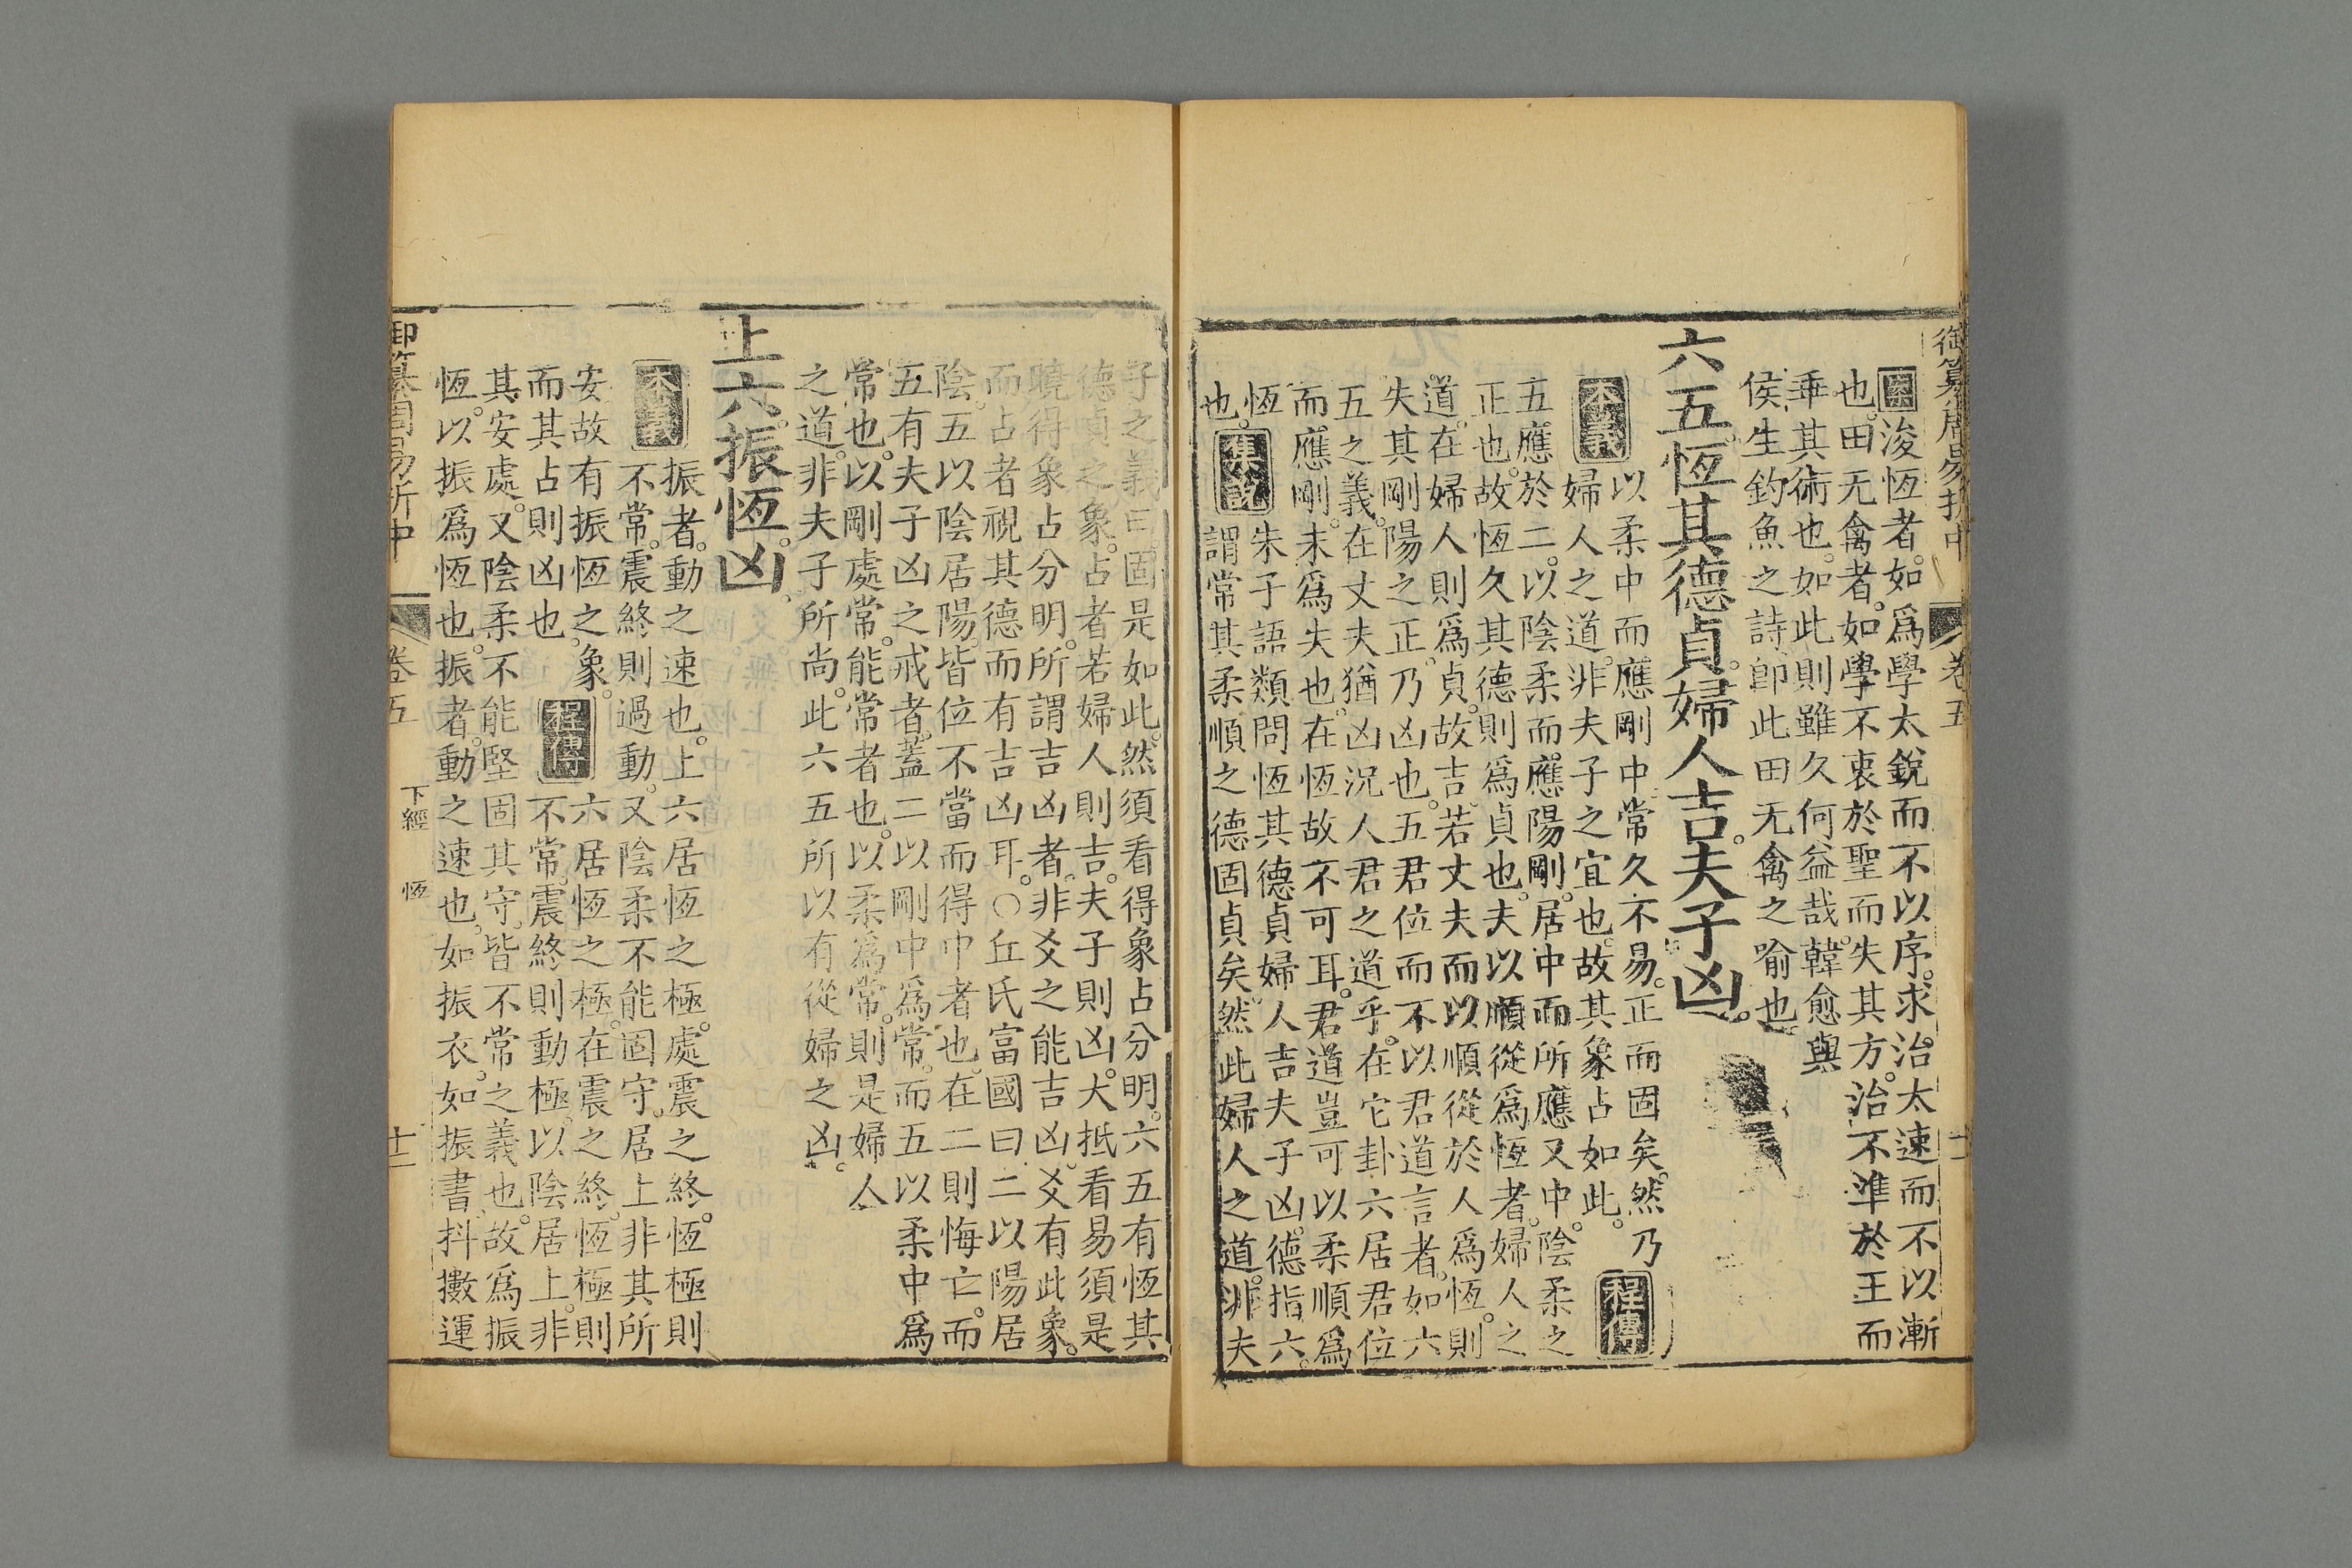 御纂周易折中 卷五
案浚恆者。如爲學太銳而不以序。求治太速而不以漸
也。田无禽者。如學不衷於聖而失其方。治不準於王而
乖其術也。如此則雖久何益哉。韓愈與
侯生釣魚之詩。卽此田无禽之喻也
六五。恆其德貞。婦人吉。夫子凶。
本義 以柔中而應剛中。常久不易。正而固矣。然乃
婦人之道。非夫子之宜也。故其象占如此。 程傳
五應於二。以陰柔而應陽剛。居中而所應又中。陰柔之
正也。故恆久其德則爲貞也。夫以順從爲恆者。婦人之
道。在婦人則爲貞。故吉。若丈夫而以順從於人爲恆。則
失其剛陽之正。乃凶也。五君位而不以君道言者。如六
五之義。在丈夫猶凶。況人君之道乎。在它卦六居君位
而應剛。未爲失也。在恆故不可耳。君道豈可以柔順爲
恆也。 集說 朱子語類問恆其德貞。婦人吉夫子凶。德指六。
謂常其柔順之德固貞矣。然此婦人之道。非夫
子之義曰。固是如此。然須看得象占分明。六五有恆其
德貞之象。占者若婦人則吉。夫子則凶。大抵看易須是
曉得象占分明。所謂吉凶者。非爻之能吉凶。爻有此象。
而占者視其德而有吉凶耳。○丘氏富國曰。二以陽居
陰。五以陰居陽。皆位不當而得中者也。在二則悔亡。而
五有夫子凶之戒者。蓋二以剛中爲常。而五以柔中爲
常也。以剛處常。能常者也。以柔爲常。則是婦人
之道。非夫子所尚。此六五所以有從婦之凶。
上六。振恆。凶。
本義 振者。動之速也。上六居恆之極。處震之終。恆極則
不常。震終則過動。又陰柔不能固守。居上非其所
安故有振恆之象。而其占則凶也。 程傳 六居恆之極。在震之終。恆極則
不常。震終則動極。以陰居上。非
其安處。又陰柔不能堅固其守。皆不常之義也。故爲振
恆。以振爲恆也。振者。動之速也。如振衣。如振書。抖擻運
御纂周易折中 卷五 下經 恆 十二